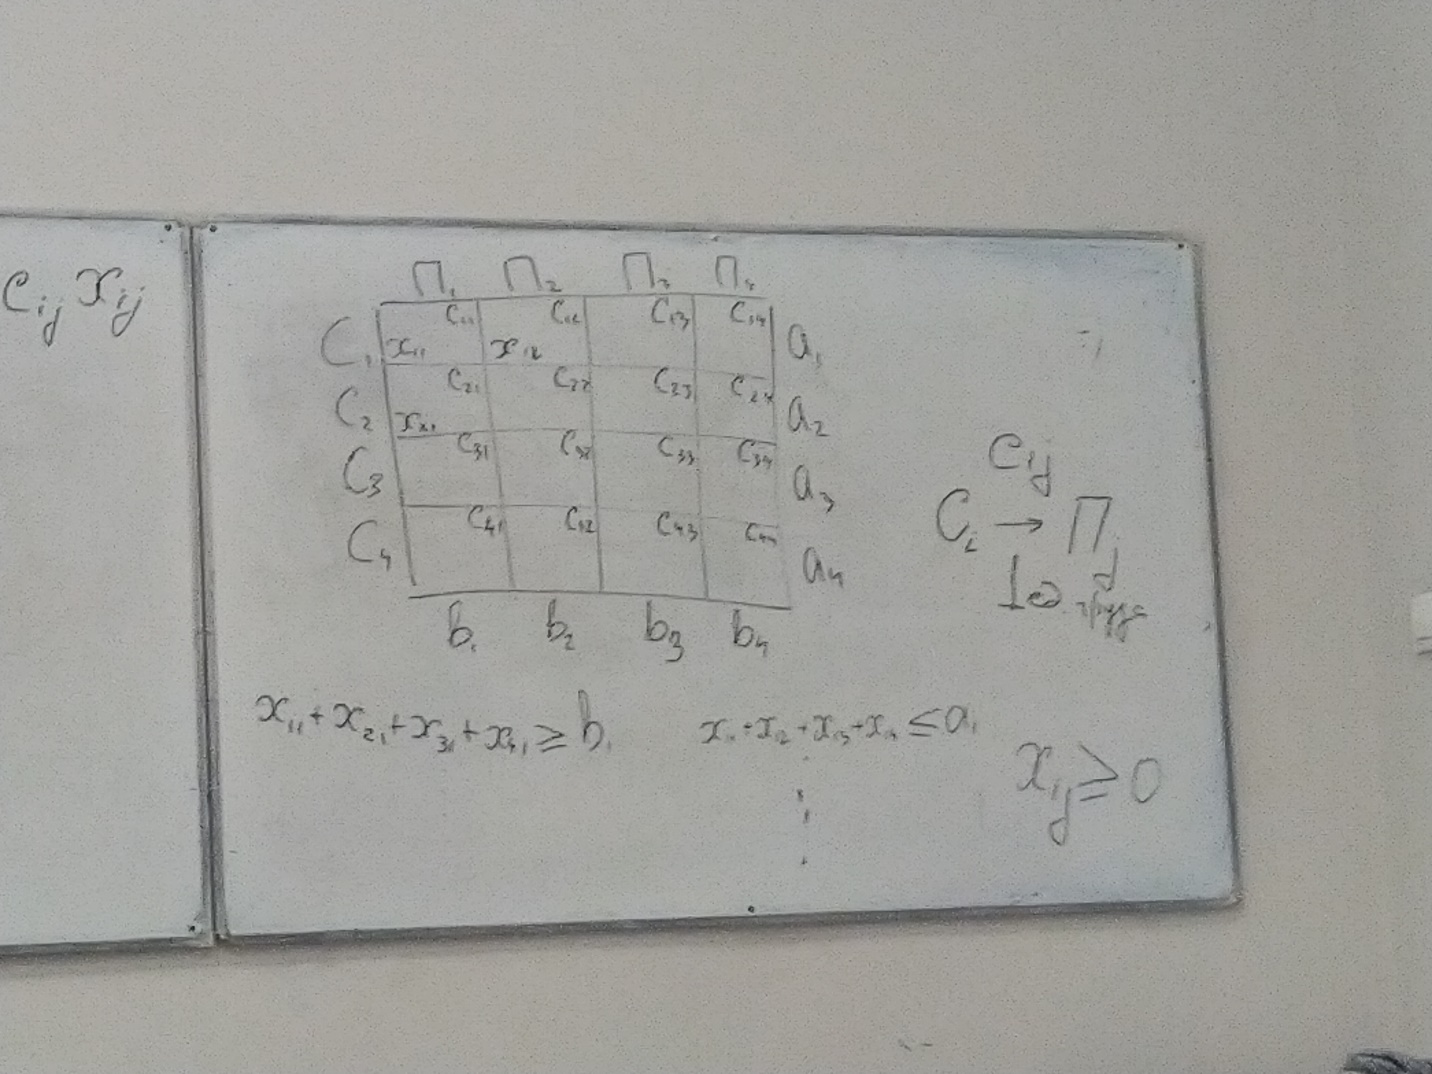 c_ij x_ij
П₁ П₂ П₃ П₄
C₁ c₁₁ c₁₂ c₁₃ c₁₄ a₁
x₁₁ x₁₂
C₂ c₂₁ c₂₂ c₂₃ c₂₄ a₂
x₂₁
C₃ c₃₁ c₃₂ c₃₃ c₃₄ a₃
C₄ c₄₁ c₄₂ c₄₃ c₄₄ a₄
b₁ b₂ b₃ b₄
c_ij
C_i → П_j
1 ед. груза
x₁₁+x₂₁+x₃₁+x₄₁ ≥ b₁ x₁₁+x₁₂+x₁₃+x₁₄ ≤ a₁
x_ij ≥ 0